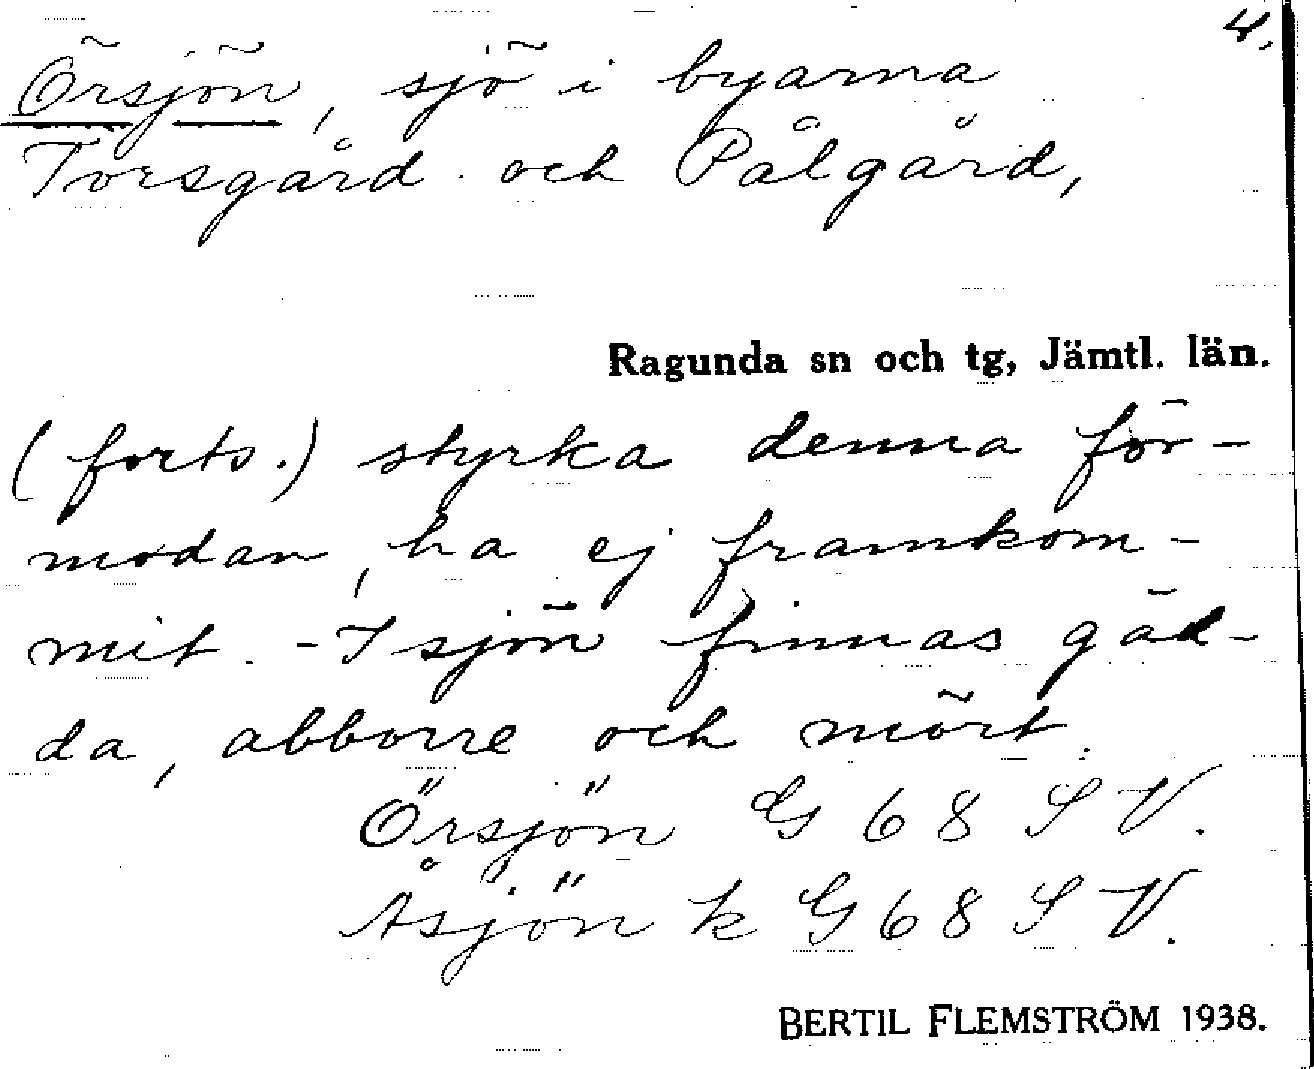 4.
Örsjön, sjö i byarna
Torsgård och Pålgård,
Ragunda sn och tg, Jämtl. län.
(forts.) styrka denna för-
modan, ha ej framkom-
mit. - I sjön finnas gäd-
da, abborre och mört.
Örsjön G 68 S V.
Åsjön k G 68 S V.
BERTIL FLEMSTRÖM 1938.